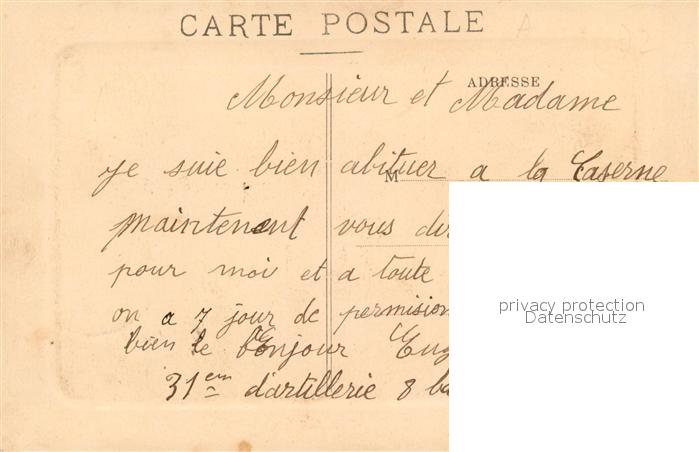 CARTE POSTALE
ADRESSE
Monsieur et Madame
M
je suie bien abituer a la Caserne
maintenant vous dir
pour moi et a toute
on a 7 jour de permision
bien le bonjour Eug
31em d'artillerie 8 ba
privacy protection
Datenschutz